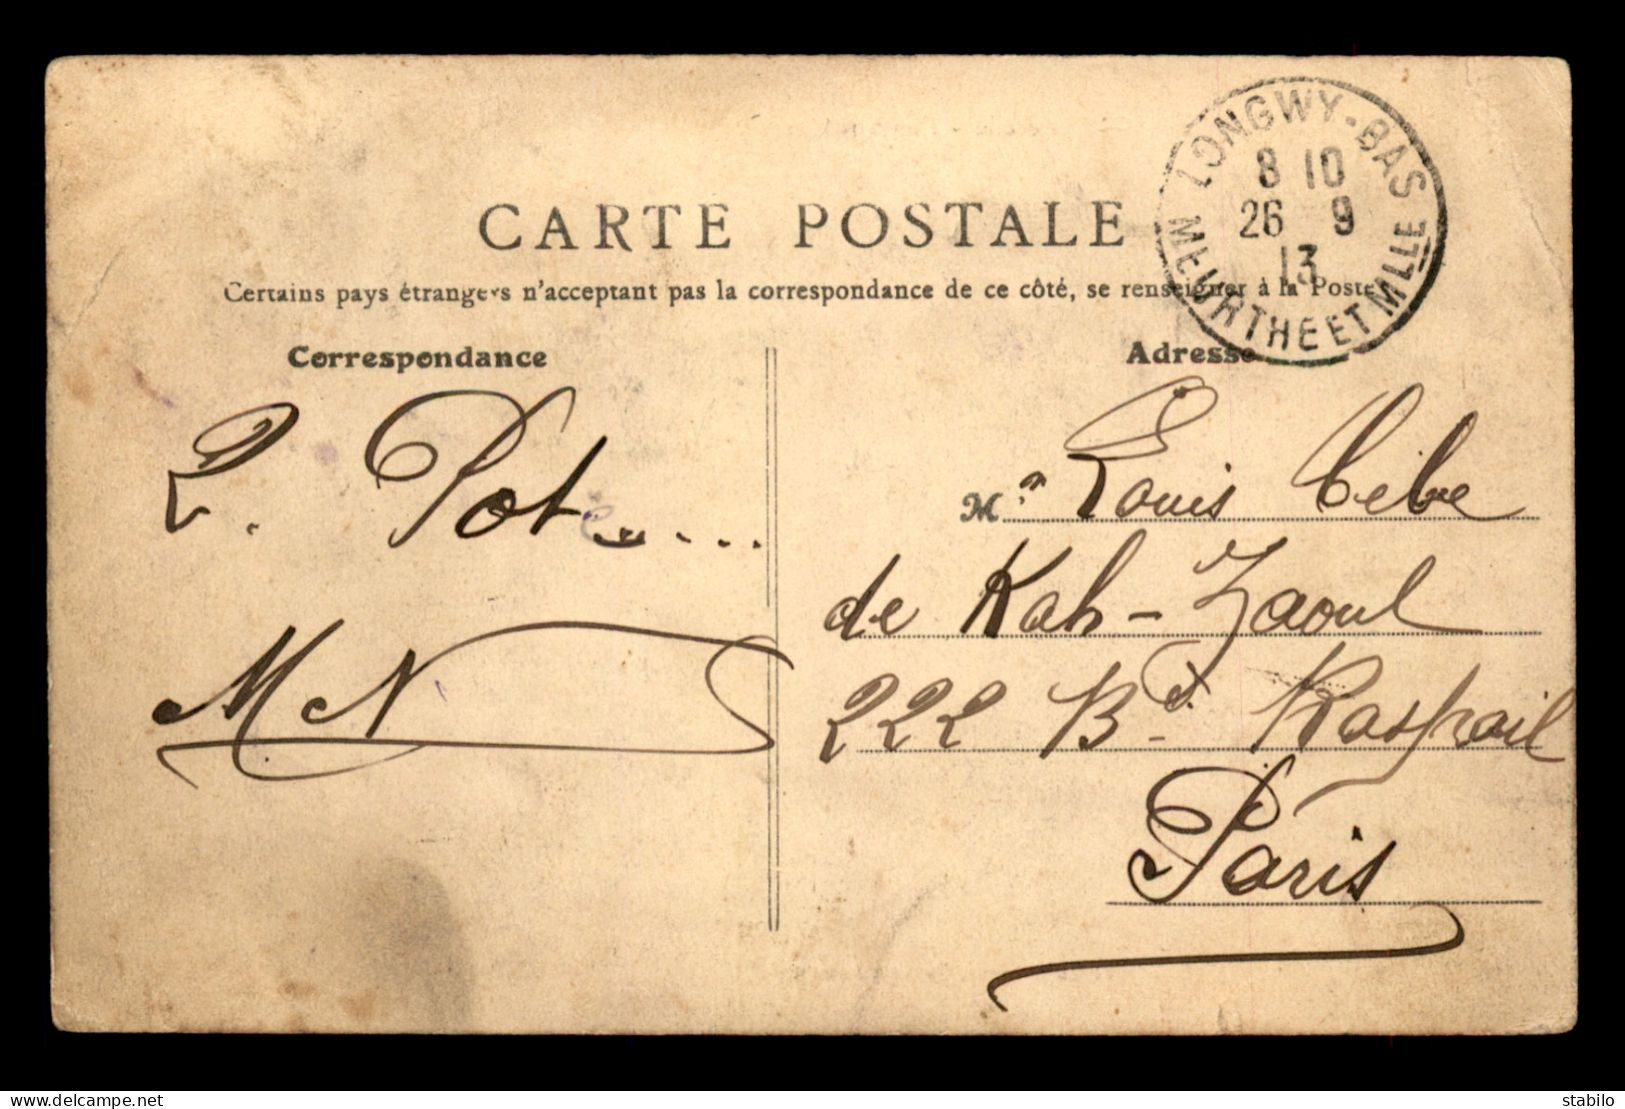 LONGWY-BAS
8 10
26 9
13
MEURTHE ET MLLE
CARTE POSTALE
Certains pays étrangers n'acceptant pas la correspondance de ce côté, se renseigner à la Poste
Correspondance
Adresse
2. Pot
M N
M Louis Bebe
de Kah-Zaoul
222 Bd Raspail
Paris
delcampe.net
stabilo